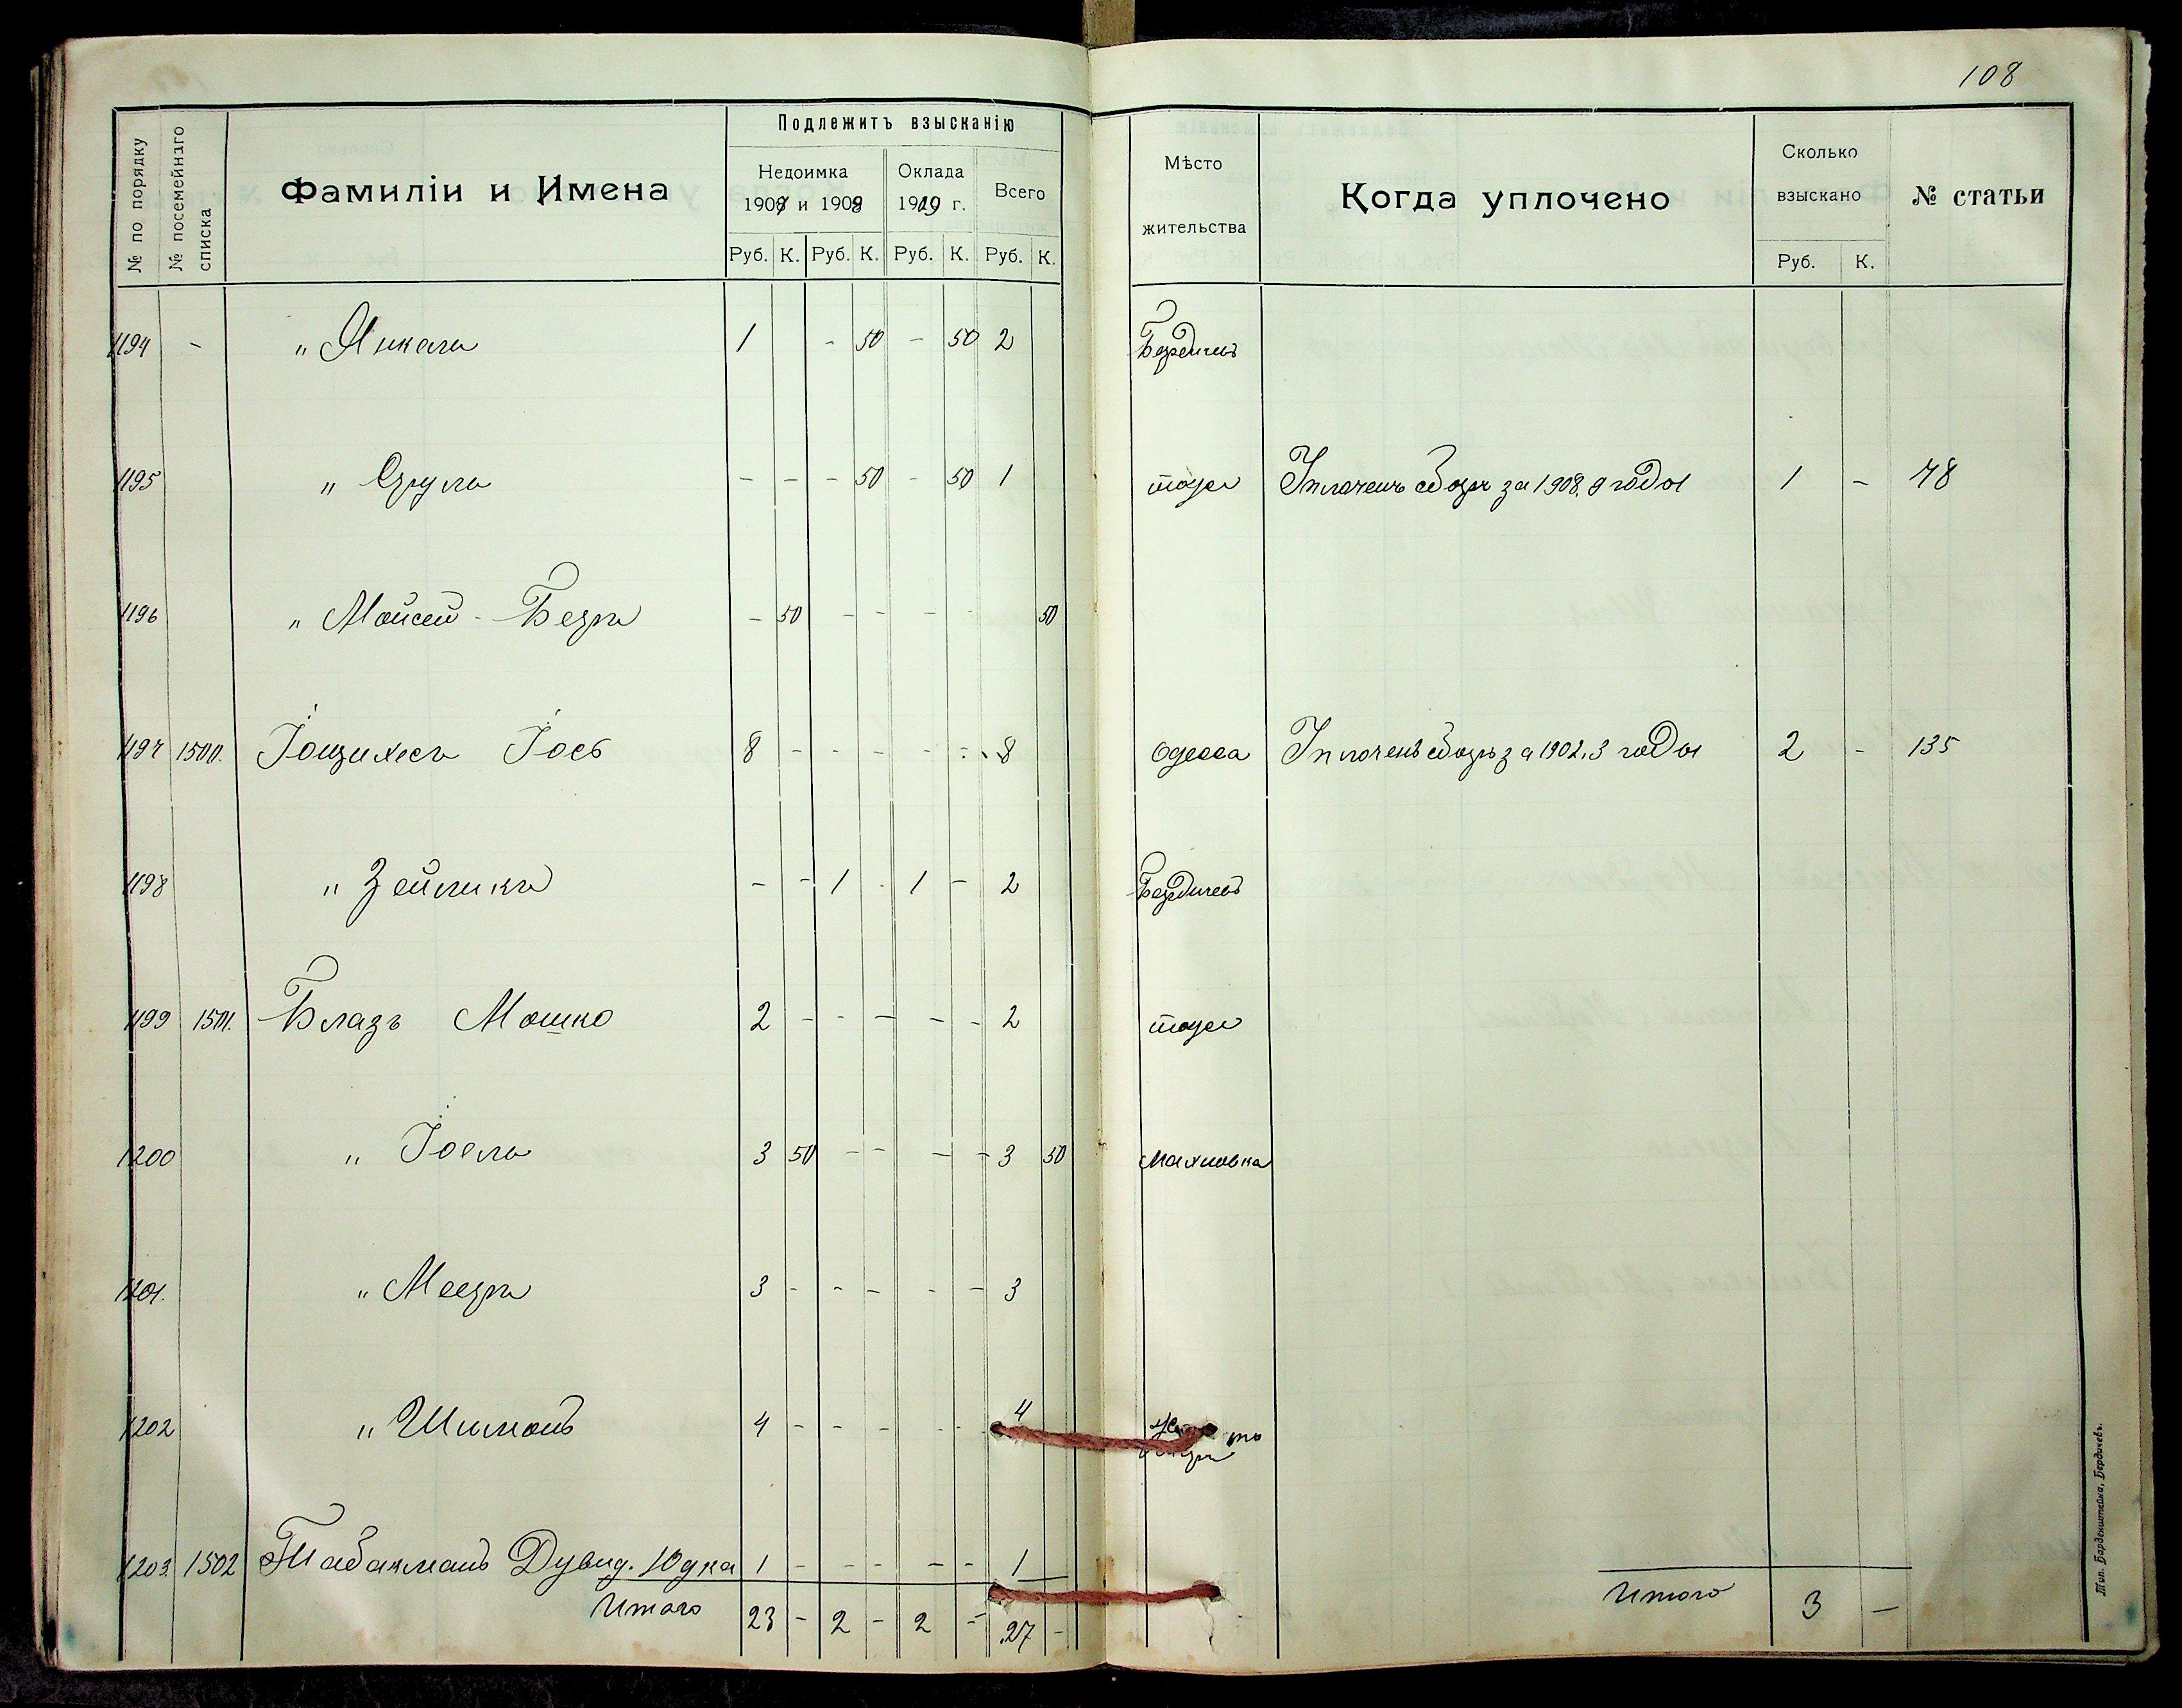 108
№ по порядку
№ посемейнаго списка
Фамиліи и Имена
Подлежитъ взысканію
Недоимка
1907 и 1908
Оклада
1909 г.
Всего
Руб. К. Руб. К. Руб. К. Руб. К.
Мѣсто
жительства
Когда уплочено
Сколько
взыскано
Руб. К.
№ статьи
1194 - " Янкель 1 - 50 - 50 2 Бердичевъ
1195 " Сруль - - - 50 - 50 1 тоже Уплоченъ сборъ за 1908, 9 годы 1 - 78
1196 " Мойсей-Беръ - 50 - - - - 50
1197 1500. Іощихесъ Іось 8 - - - - - 8 Одесса Уплоченъ сборъ за 1902, 3 годы 2 - 135
1198 " Зейликъ - - 1 - 1 - 2 Бердичевъ
1199 1501. Блазъ Мошко 2 - - - - - 2 тоже
1200 " Іоель 3 50 - - - - 3 50 Махновка
1201. " Мееръ 3 - - - - - 3
1202 " Шимонъ 4 - - - - - 4
1203. 1502 Табакманъ Дувид. Юдка 1 - - - - - 1
Итого 23 - 2 - 2 - 27 -
Итого 3 -
Тип. Барденштейна, Бердичевъ.